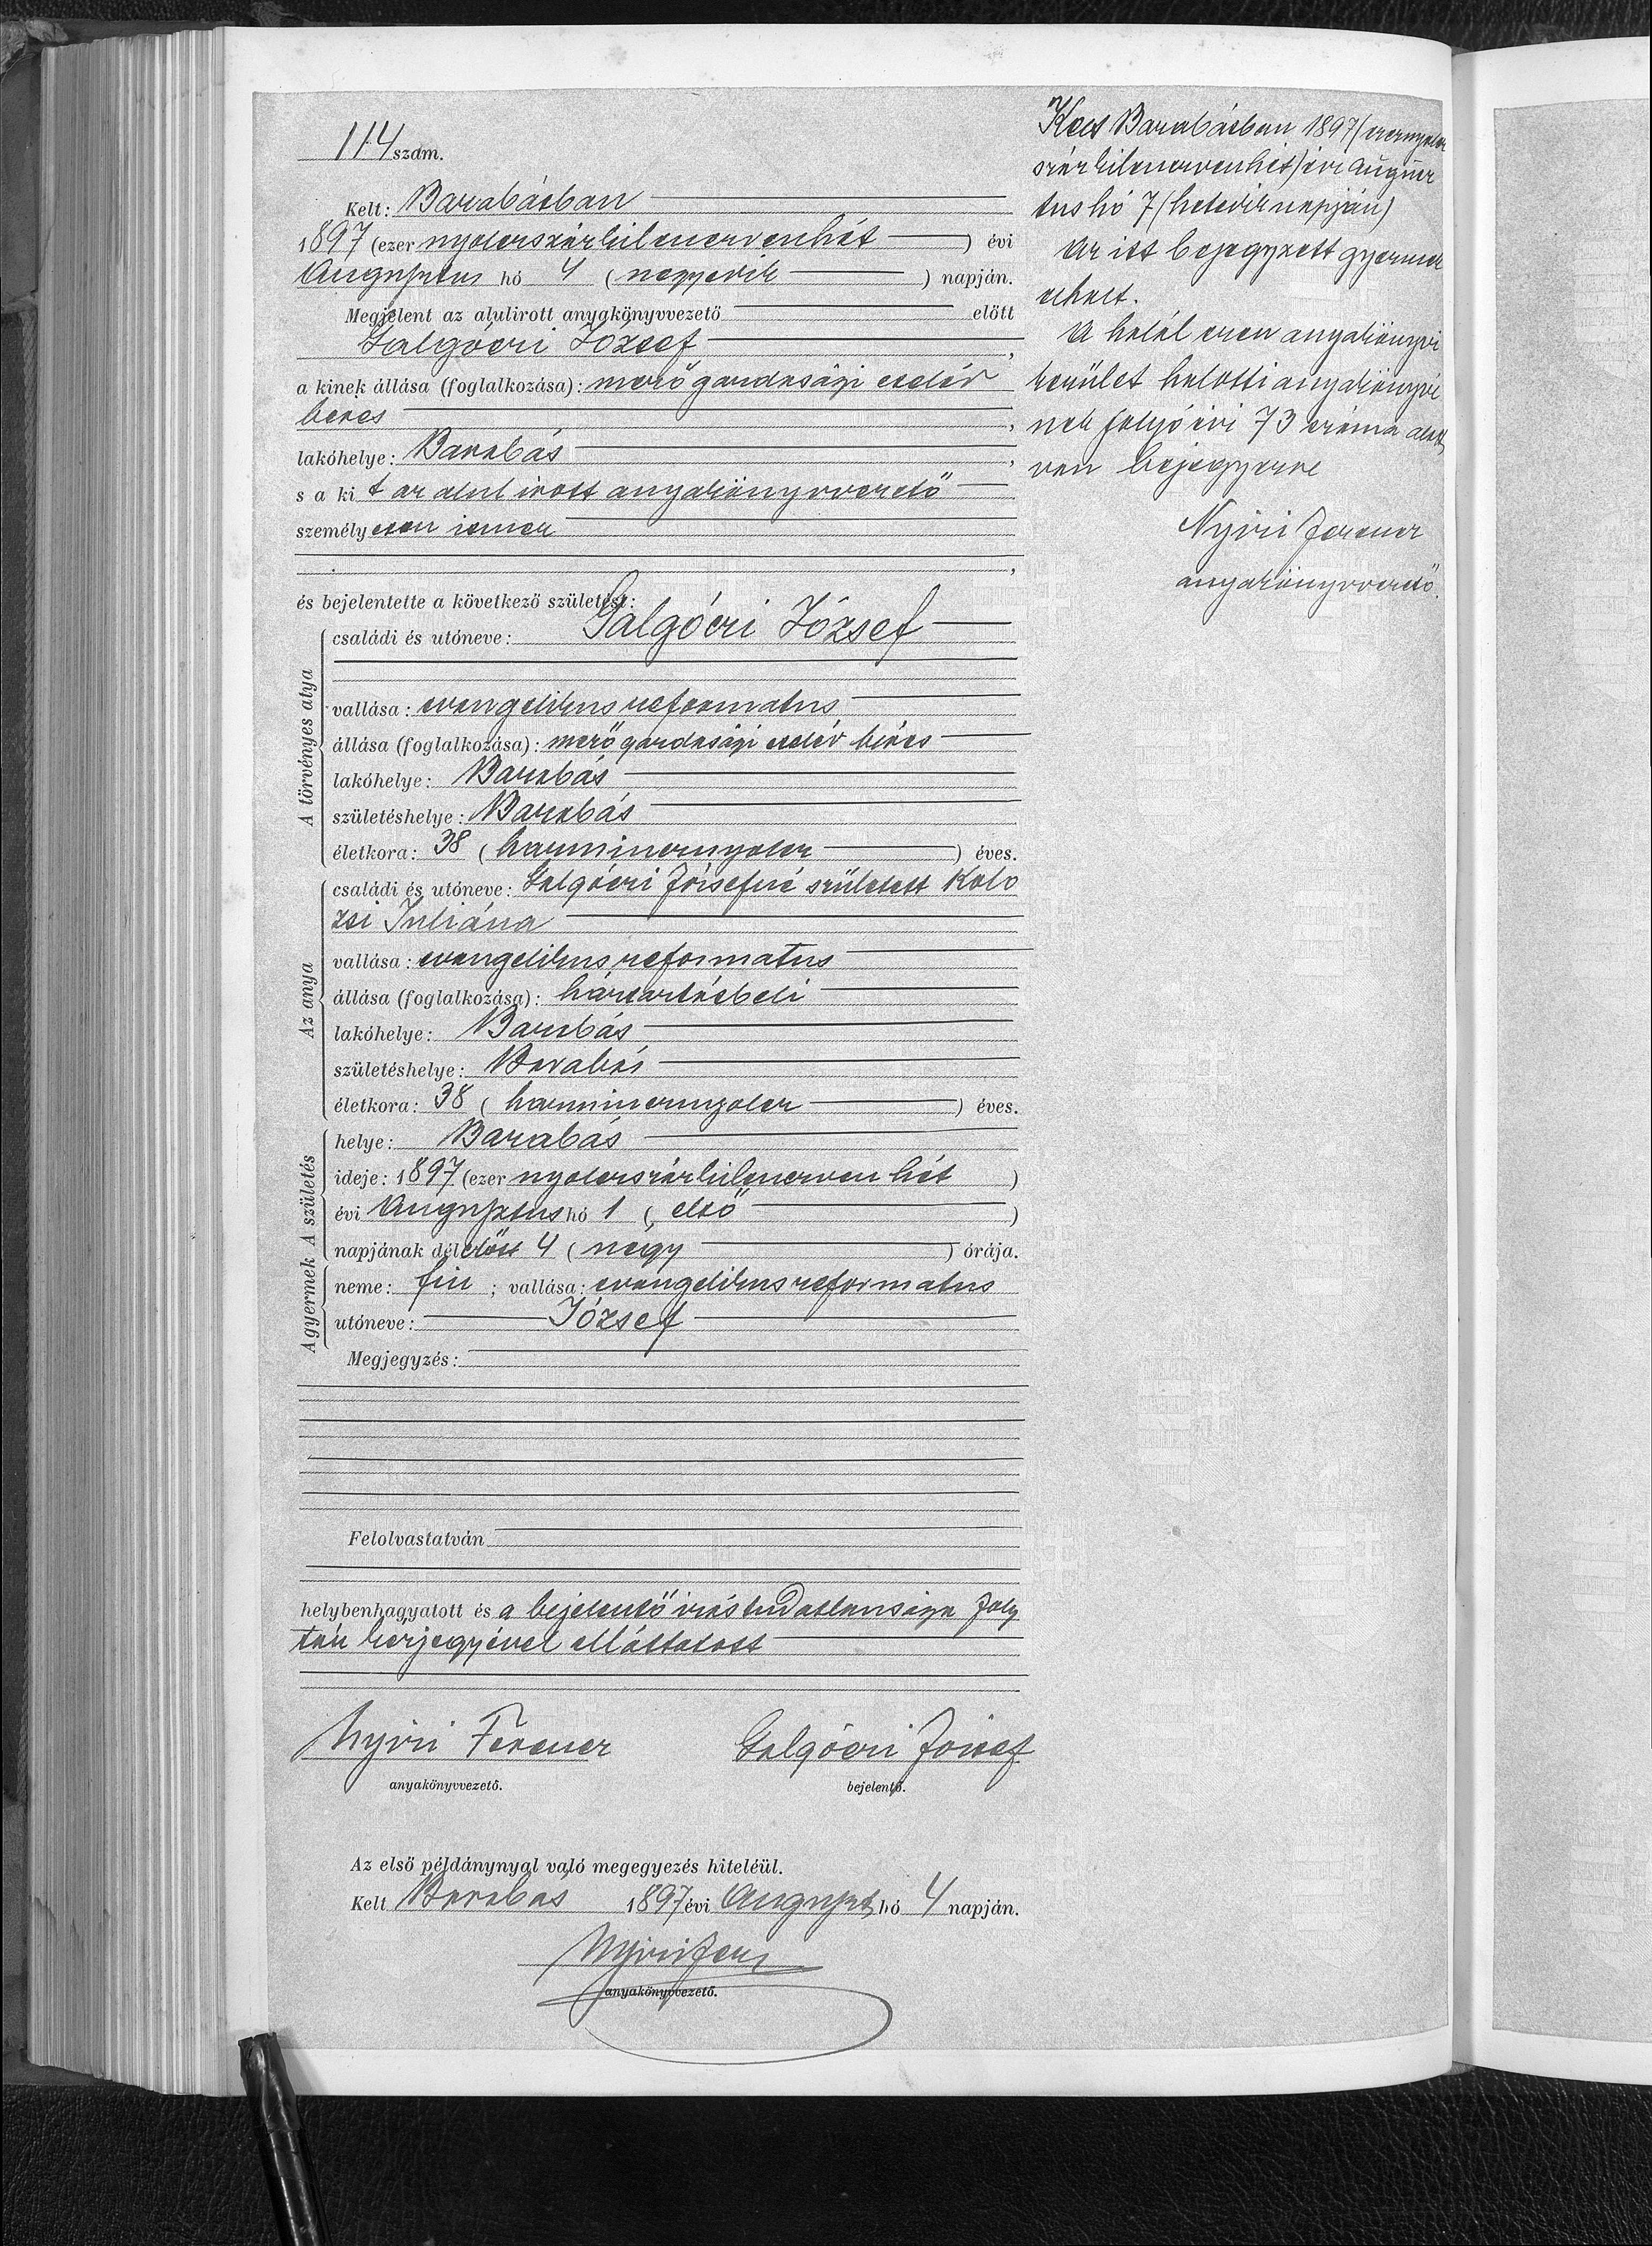 114 szám.
Kelt: Barabásban
1897 (ezer nyolcszázkilencvenhét) évi
Augusztus hó 4 (negyedik) napján.
Megjelent az alulirott anyakönyvvezető előtt
Galgóczi József,
a kinek állása (foglalkozása): mezőgazdasági cseléd
béres,
lakóhelye: Barabás,
s a kit az alulirott anyakönyvvezető
személyesen ismer
,
és bejelentette a következő születést:
A törvényes atya
családi és utóneve: Galgóczi József
vallása: evangelikus reformatus
állása (foglalkozása): mezőgazdasági cseléd béres
lakóhelye: Barabás
születéshelye: Barabás
életkora: 38 (harmincnyolcz) éves.
Az anya
családi és utóneve: Galgóczi Józsefné született Kolo
zsi Juliána
vallása: evangelikus reformatus
állása (foglalkozása): háztartásbeli
lakóhelye: Barabás
születéshelye: Barabás
életkora: 38 (harmincnyolcz) éves.
A születés
helye: Barabás
ideje: 1897 (ezer nyolcszázkilencvenhét)
évi Augusztus hó 1 (első)
napjának délelőtt 4 (négy) órája.
A gyermek
neme: fiú; vallása: evangelikus reformatus
utóneve: József
Megjegyzés:
Felolvastatván
helybenhagyatott és a bejelentő irástudatlansága foly
tán kézjegyével elláttatott
Nyiri Ferencz
anyakönyvvezető.
Galgóczi József
bejelentő.
Az első példánynyal való megegyezés hiteléül.
Kelt Barabás 1897 évi Auguszt hó 4 napján.
Nyiri Fer
anyakönyvvezető.
Kelt Barabásban 1897 (ezernyolcz
százkilencvenhét) évi Augusz
tus hó 7 (hetedik napján)
Az itt bejegyzett gyermek
elhalt.
A halál ezen anyakönyvi
kerület halotti anyakönyvé
nek folyó évi 73 száma alatt
van bejegyezve
Nyiri Ferencz
anyakönyvvezető.